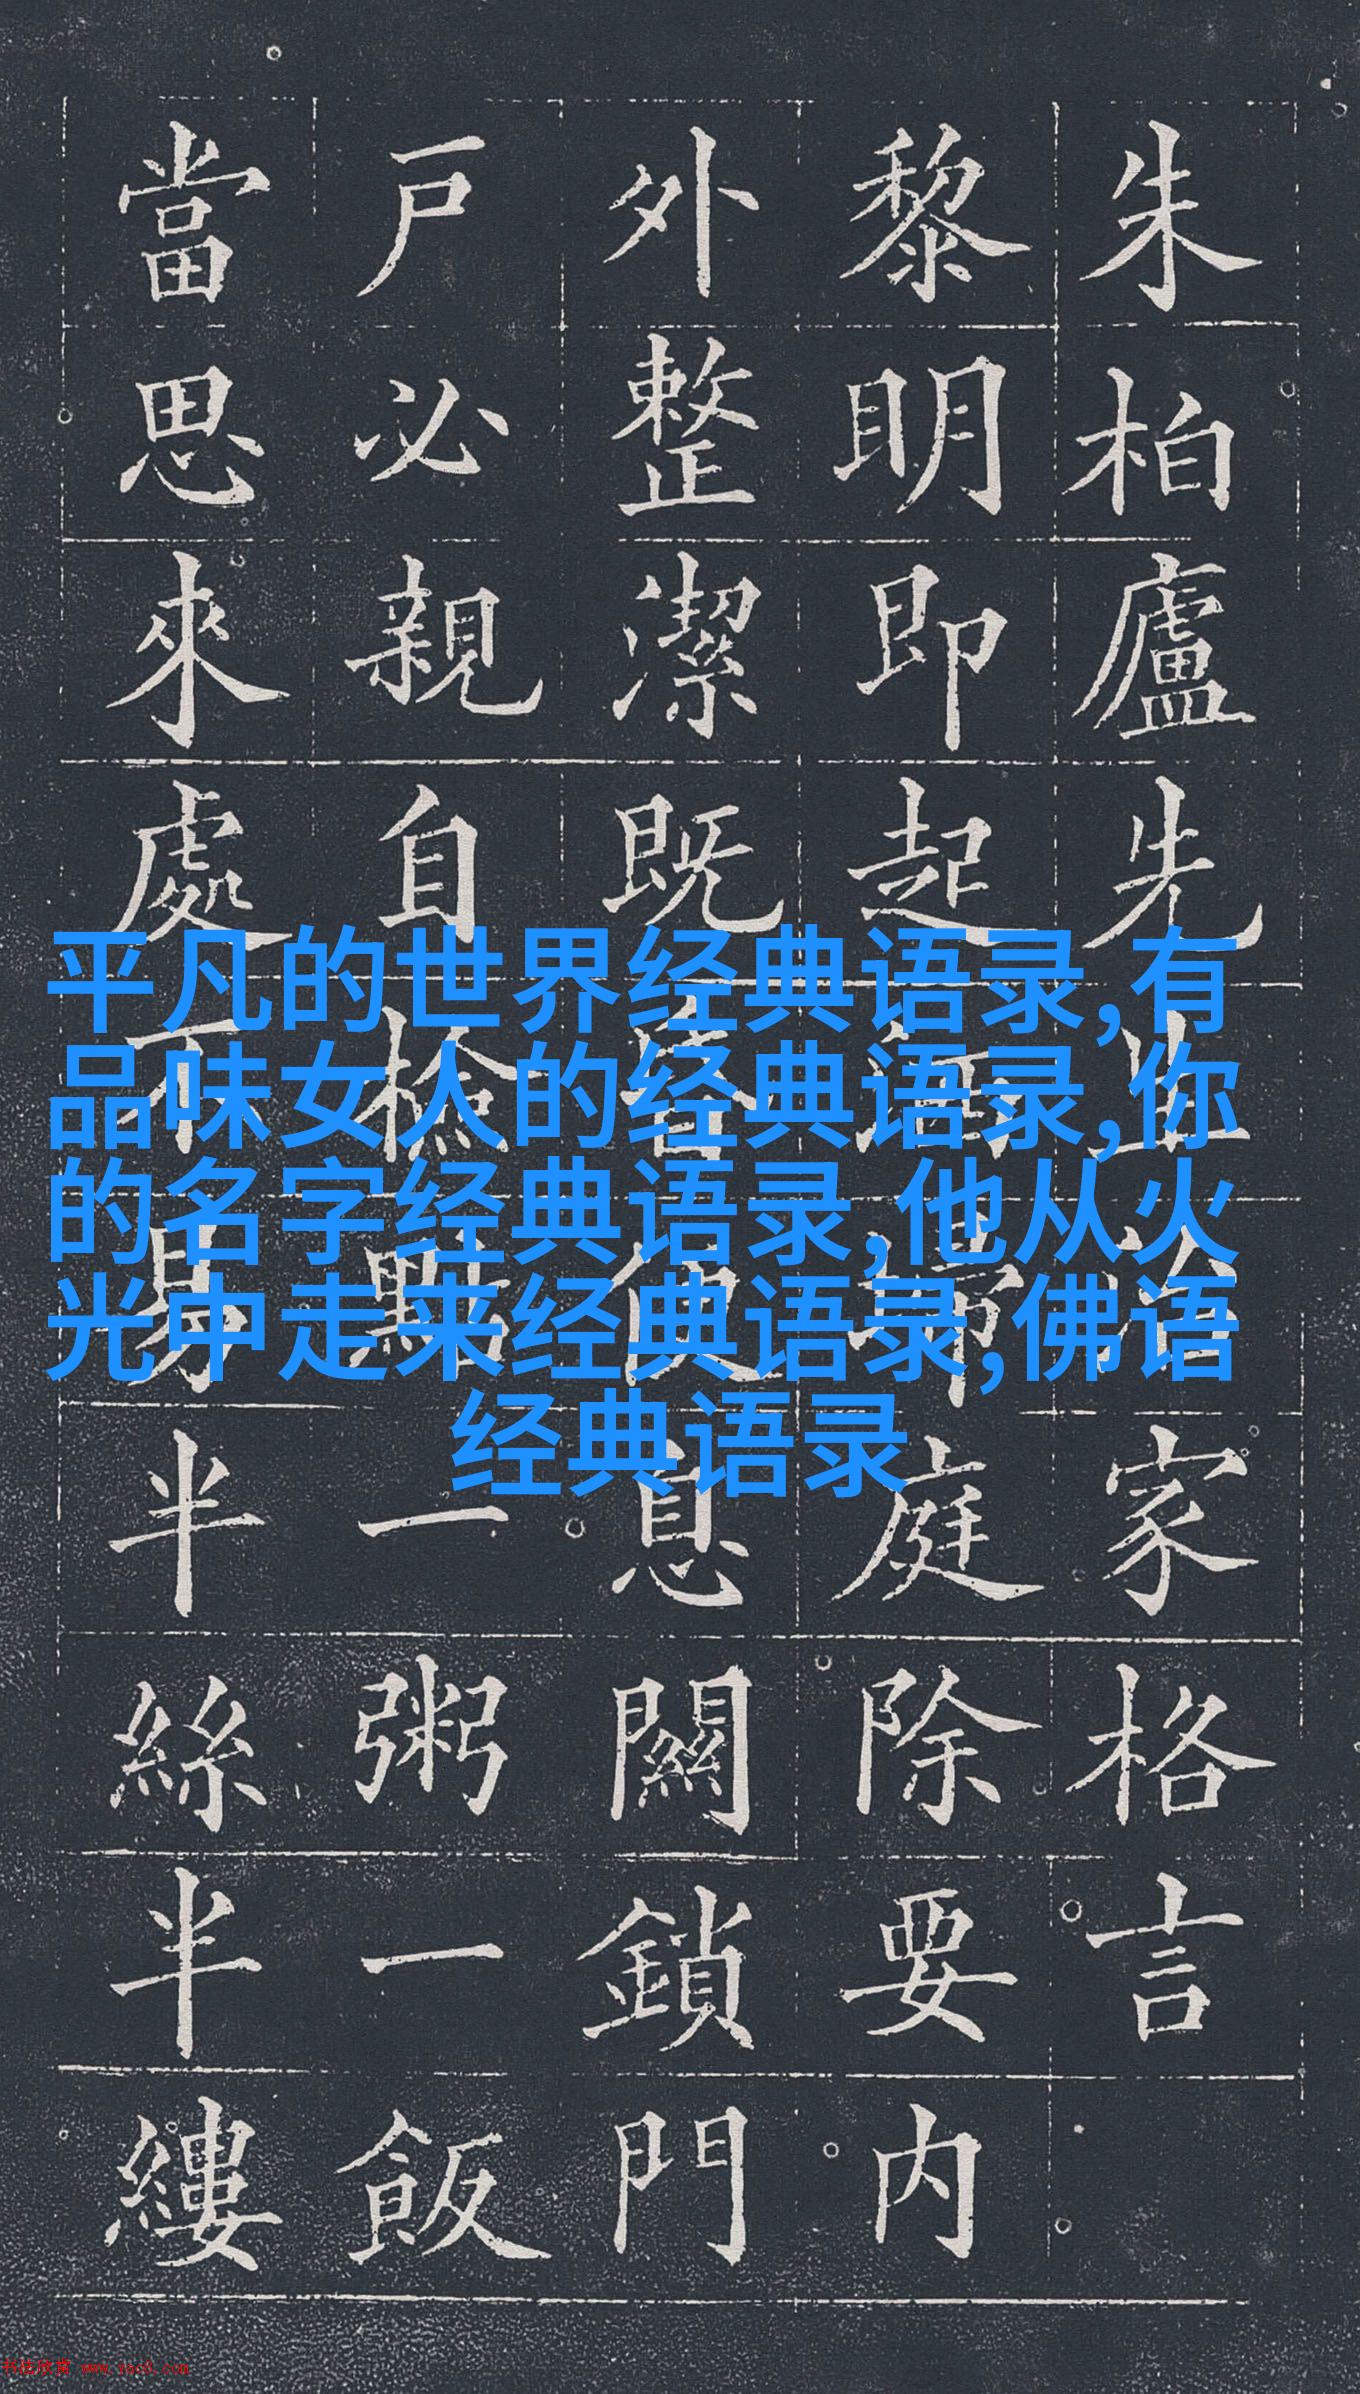 朱柏廬先生治家格言
黎明即起掃庭除要內
外整潔既昏便息關鎖門
戶必親自檢點一粥一飯
當思來處不易半絲半縷
平凡的世界经典语录,有
品味女人的经典语录,你
的名字经典语录,他从火
光中走来经典语录,佛语
经典语录